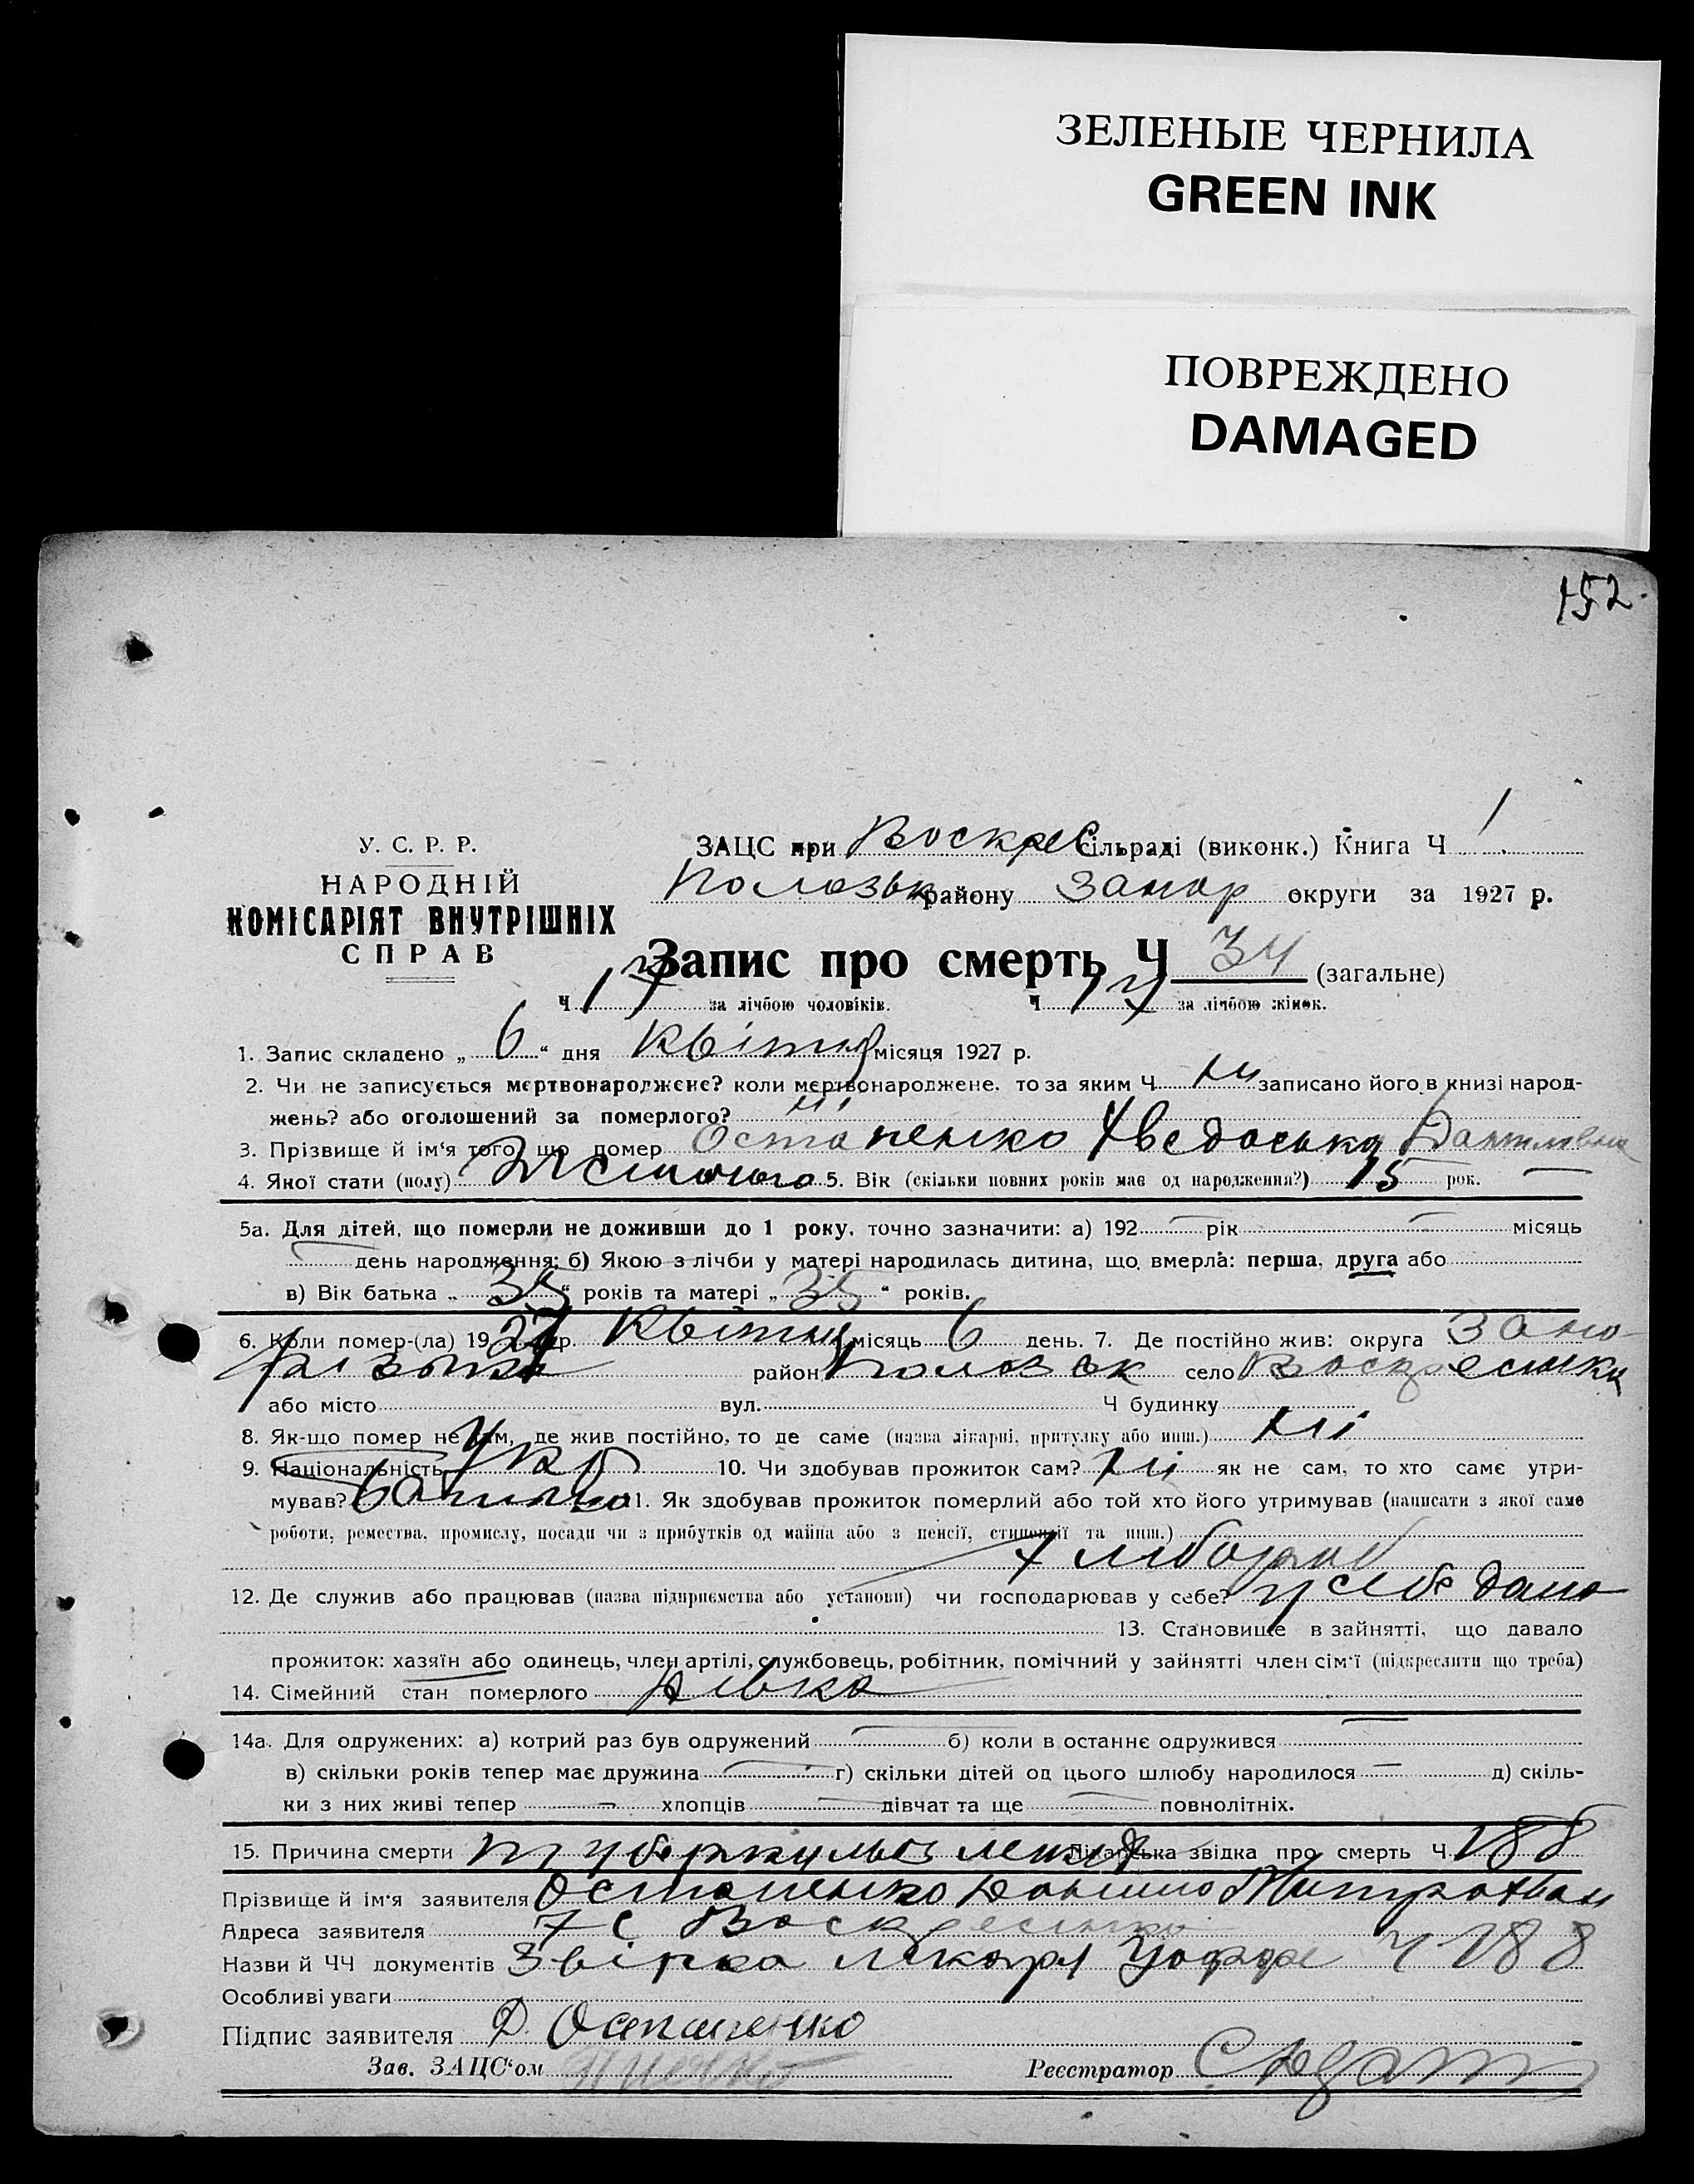 ЗЕЛЕНЫЕ ЧЕРНИЛА
GREEN INK
ПОВРЕЖДЕНО
DAMAGED
152.
У. С. Р. Р.
НАРОДНІЙ
КОМІСАРІЯТ ВНУТРІШНІХ
СПРАВ
ЗАЦС при Воскрес Сільраді (виконк.) Книга Ч 1
Полозьк району Запор округи за 1927 р.
Запис про смерть Ч 34 (загальне)
Ч 17 за лічбою чоловіків. Ч 17 за лічбою жінок.
1. Запис складено „ 6 “ дня Квітня місяця 1927 р.
2. Чи не записується мертвонароджене? коли мертвонароджене, то за яким Ч ні записано його в книзі народ-
жень? або оголошений за померлого? ні
3. Прізвище й ім'я того, що помер Остапенко Хведоська Данилівна
4. Якої стати (полу) Жіночого 5. Вік (скільки повних років має од народження?) 15 рок.
5а. Для дітей, що померли не доживши до 1 року, точно зазначити: а) 192 рік місяць
день народження; б) Якою з лічби у матері народилась дитина, що вмерла: перша, друга або
в) Вік батька „ 35 “ років та матері „ 35 “ років.
6. Коли помер-(ла) 1927 р. Квітня місяць 6 день. 7. Де постійно жив: округа Запо-
різька район Полозьк село Воскресенка
або місто вул. Ч будинку
8. Як-що помер не там, де жив постійно, то де саме (назва лікарні, притулку або инш.) ні
9. Національність Укр 10. Чи здобував прожиток сам? ні як не сам, то хто саме утри-
мував? батько 11. Як здобував прожиток померлий або той хто його утримував (написати з якої саме
роботи, ремества, промислу, посади чи з прибутків од майна або з пенсії, стипендії та инш.)
Хлібороб
12. Де служив або працював (назва підприємства або установи) чи господарював у себе? у себе дома
13. Становище в зайнятті, що давало
прожиток: хазяїн або одинець, член артілі, службовець, робітник, помічний у зайнятті член сім'ї (підкреслити що треба)
14. Сімейний стан померлого дівка
14а. Для одружених: а) котрий раз був одружений б) коли в останнє одружився
в) скільки років тепер має дружина г) скільки дітей од цього шлюбу народилося д) скіль-
ки з них живі тепер хлопців дівчат та ще повнолітніх.
15. Причина смерти туберкульоз легенів Лікарська звідка про смерть Ч 188
Прізвище й ім'я заявителя Остапенко Данило Митрохван
Адреса заявителя с Воскресенка
Назви й ЧЧ документів Звідка лікаря Ч 188
Особливі уваги
Підпис заявителя Д. Остапенко
Зав. ЗАЦС'ом Реєстратор